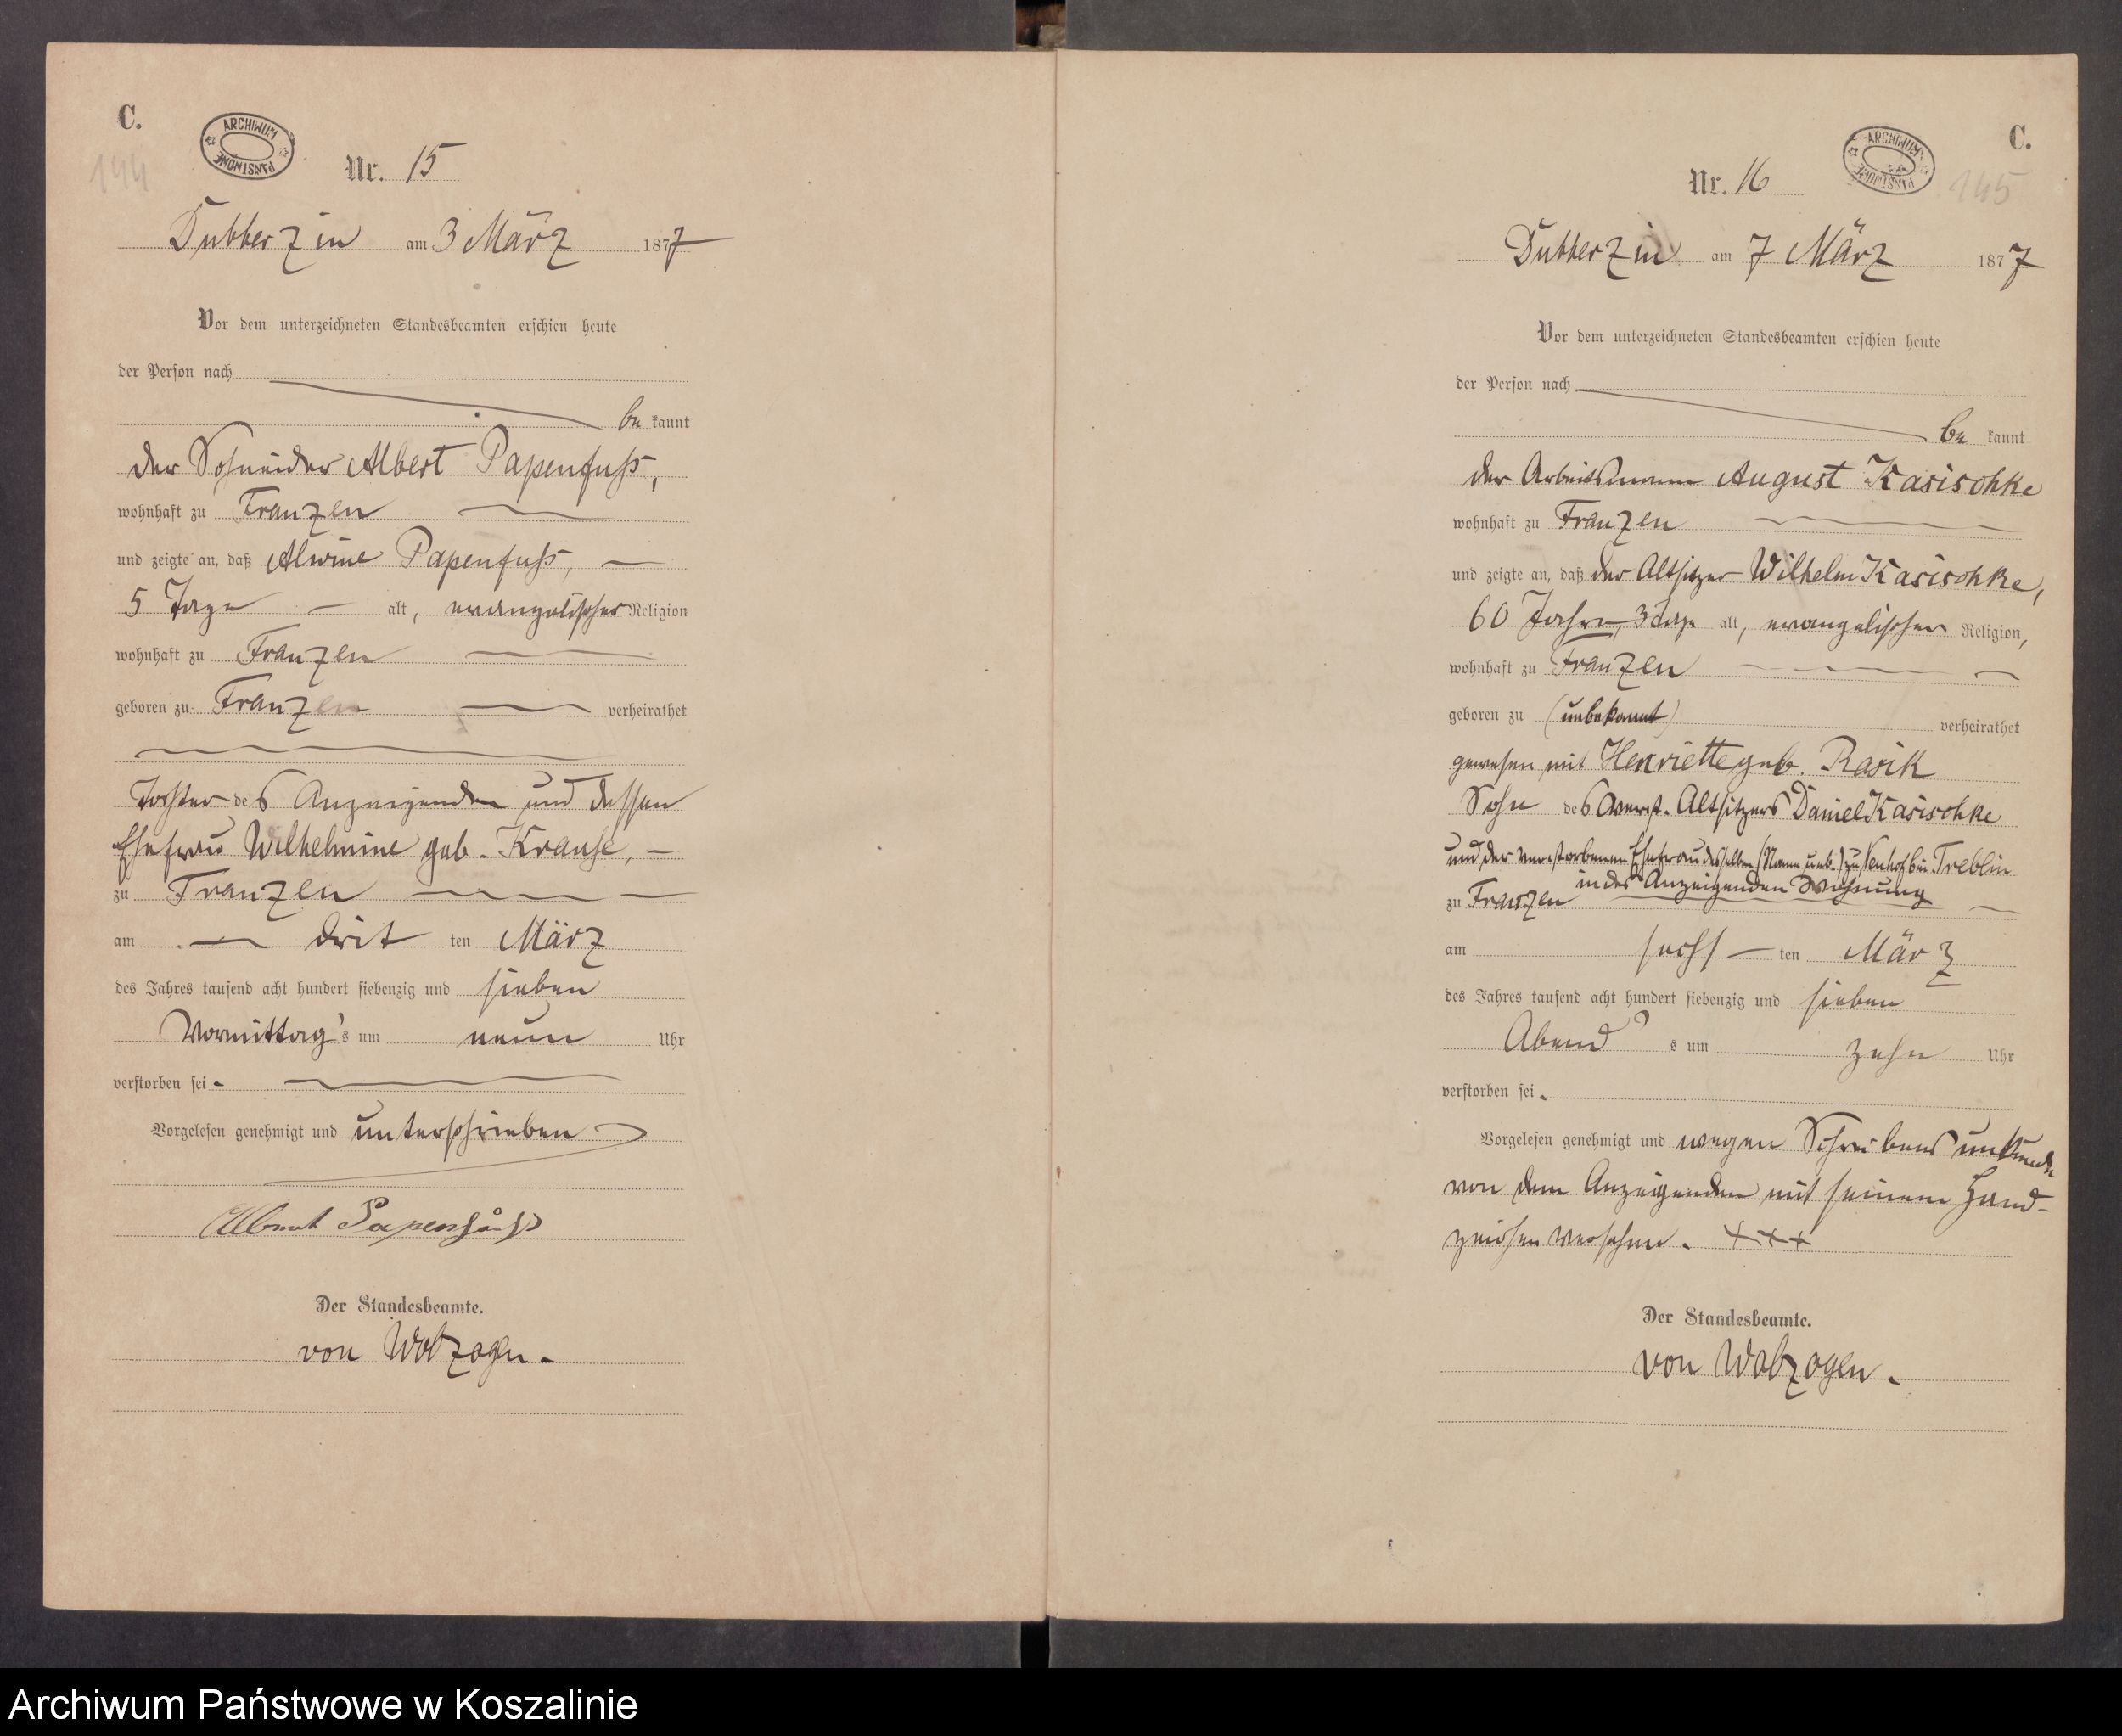 C.
ARCHIWUM PAŃSTWOWE
144
Nr. 15
Dubberzin am 3 März 1877
Vor dem unterzeichneten Standesbeamten erschien heute
der Person nach
be kannt
der Schneider Albert Papenfuß,
wohnhaft zu Franzen
und zeigte an, daß Alwine Papenfuß,
5 Tage alt, evangelischer Religion
wohnhaft zu Franzen
geboren zu Franzen verheirathet
Tochter des Anzeigenden und dessen
Ehefrau Wilhelmine geb. Krause,
zu Franzen
am drit ten März
des Jahres tausend acht hundert siebenzig und sieben
Vormittag's um neun Uhr
verstorben sei.
Vorgelesen genehmigt und unterschrieben
Albert Papenfuß
Der Standesbeamte.
von Wolzogen.
C.
ARCHIWUM PAŃSTWOWE
145
Nr. 16
Dubberzin am 7 März 1877
Vor dem unterzeichneten Standesbeamten erschien heute
der Person nach
be kannt
der Arbeitsmann August Kasischke
wohnhaft zu Franzen
und zeigte an, daß der Altsitzer Wilhelm Kasischke,
60 Jahre, 3 Tage alt, evangelischer Religion,
wohnhaft zu Franzen
geboren zu (unbekannt) verheirathet
gewesen mit Henriette geb. Rasik
Sohn des verst. Altsitzers Daniel Kasischke
und der verstorbenen Ehefrau desselben (Name unb.) zu Neuhof bei Treblin
zu Franzen in des Anzeigenden Wohnung
am sechs ten März
des Jahres tausend acht hundert siebenzig und sieben
Abend s um zehn Uhr
verstorben sei.
Vorgelesen genehmigt und wegen Schreibens unkunde
von dem Anzeigenden mit seinem Hand-
zeichen versehen. +++
Der Standesbeamte.
von Wolzogen.
Archiwum Państwowe w Koszalinie